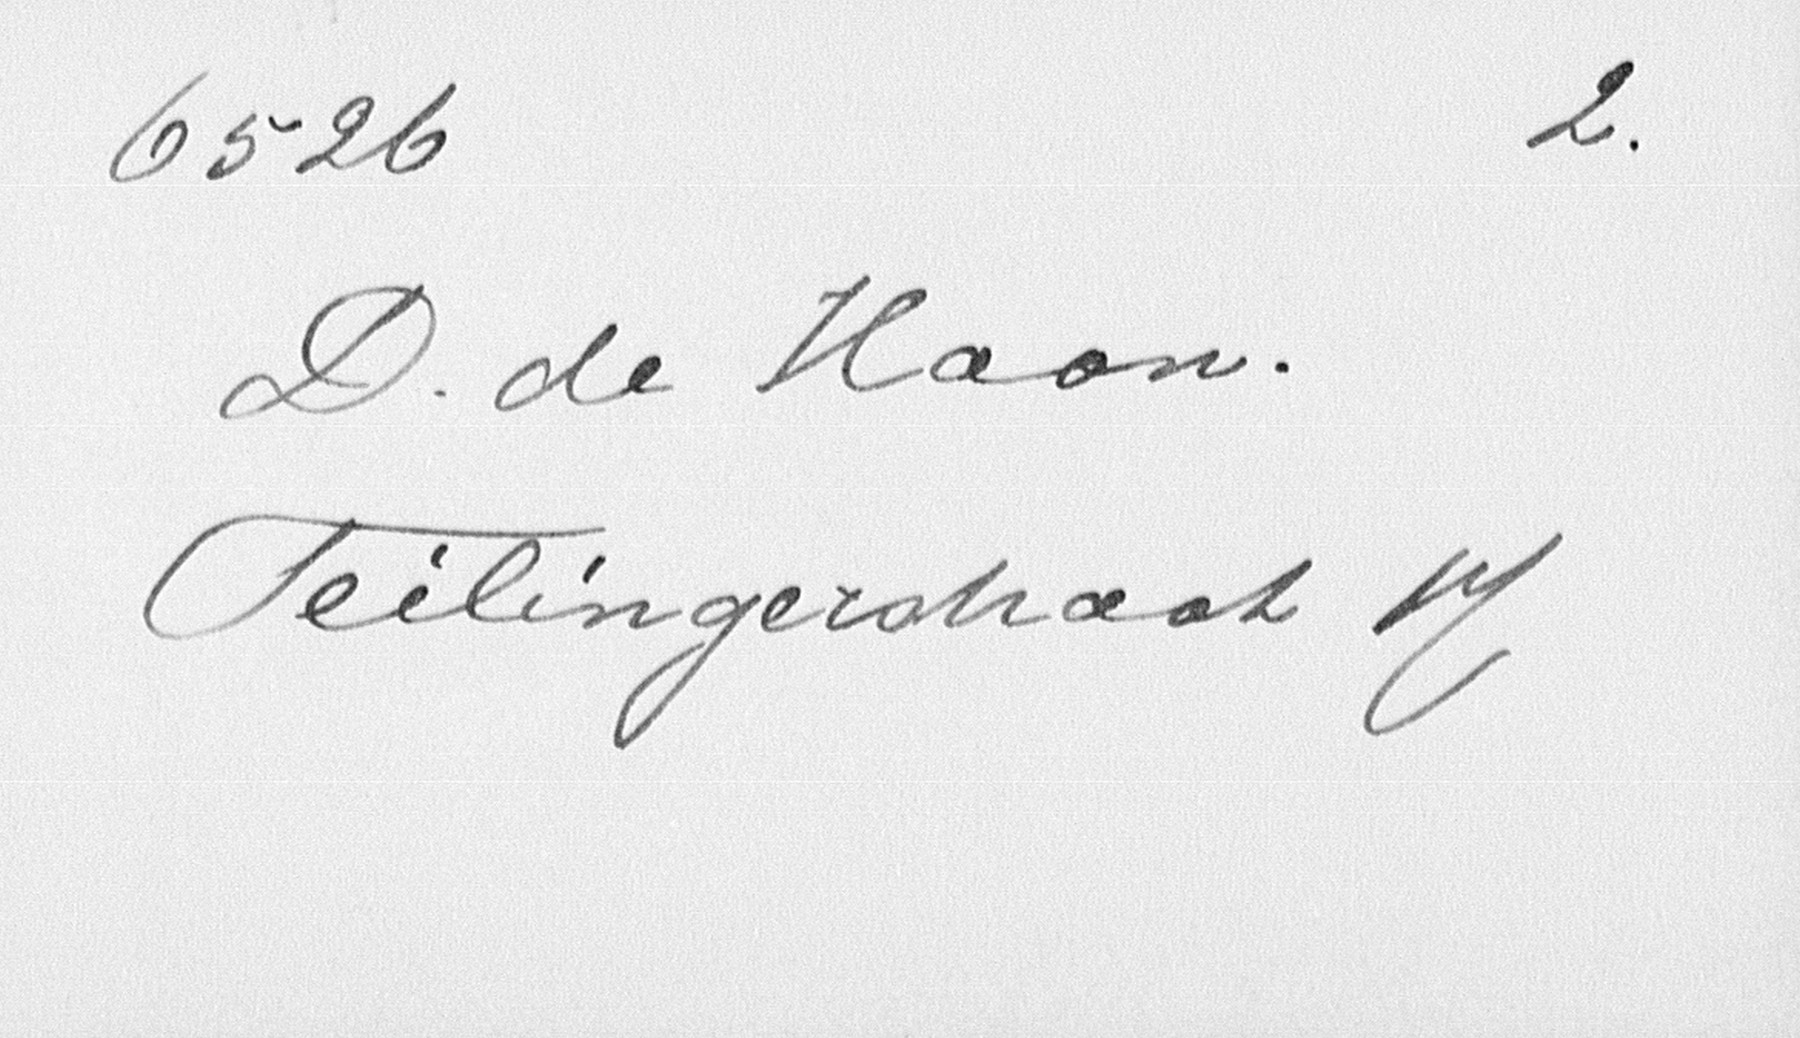 6526 2.
D. de Haan.
Teilingerstraat